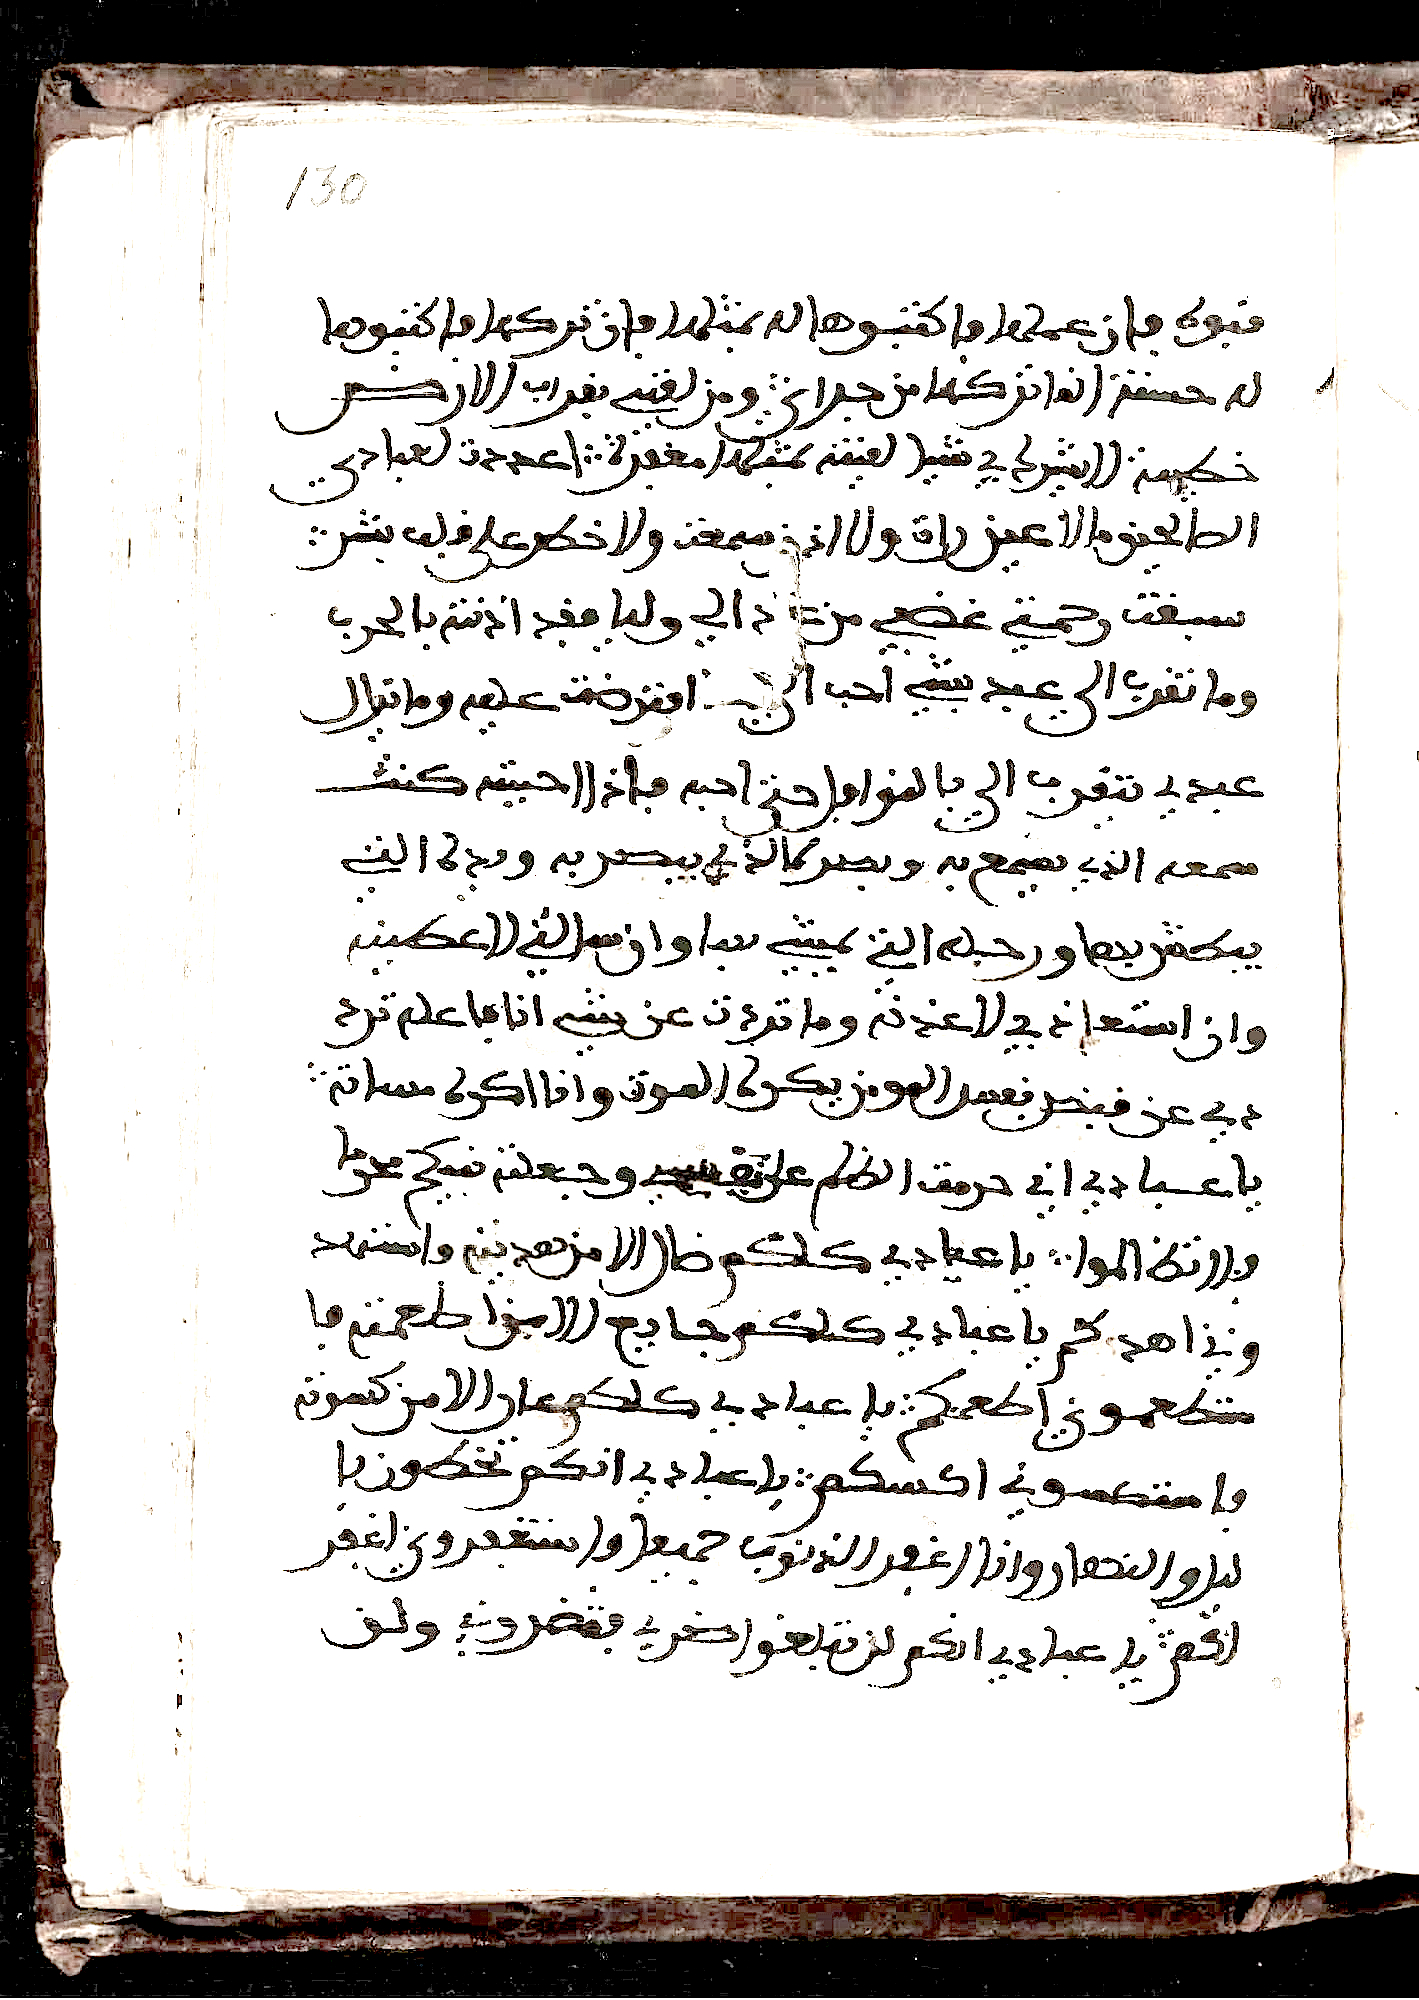 130
فتوه فان عملها فاكتبوها له بمثلها فان تركها فاكتبوها
له حسنة انما تركها من جراي ومن لقيني بقراب الارض
خطيئة لايشرك بي شيا لقيته بمثلها مغفرة اعددت لعبادي
الصالحين مالا عين رات ولا اذن سمعت ولا خطر على قلب بشر
سبقت رحمتي غضبي من عاد الي وليا فقد اذنته بالحرب
وما تقرب الي عبد بشي احب الي افترضت عليه وما يزال
عبدي يتقرب الي بالنوافل حتى احبه فاذا احببته كنت
سمعه الذي يسمع به وبصره الذي يبصر به ويده التي
يبطش بها ورجله التي يمشي بها وان سالني لاعطينه
وان استعاذ بي لاعذته وما ترددت عن شي انا فاعله ترد
دي عن قبض نفس المومن يكره الموت وانا اكره مساته
يا عبادي اني حرمت الظلم على نفسي وجعلته بينكم محرما
فلا تظالموا يا عبادي كلكم ضال الا من هديته فاستهد
وني اهدكم يا عبادي كلكم جايع الا من اطعمته فا
ستطعموني اطعمكم يا عبادي كلكم عار الا من كسوته
فاستكسوني اكسكم يا عبادي انكم تخطون با
ليل والنهار وانا اغفر الذنوب جميعا فاستغفروني اغفر
لكم يا عبادي انكم لن تبلغوا ضري فتضروني ولن